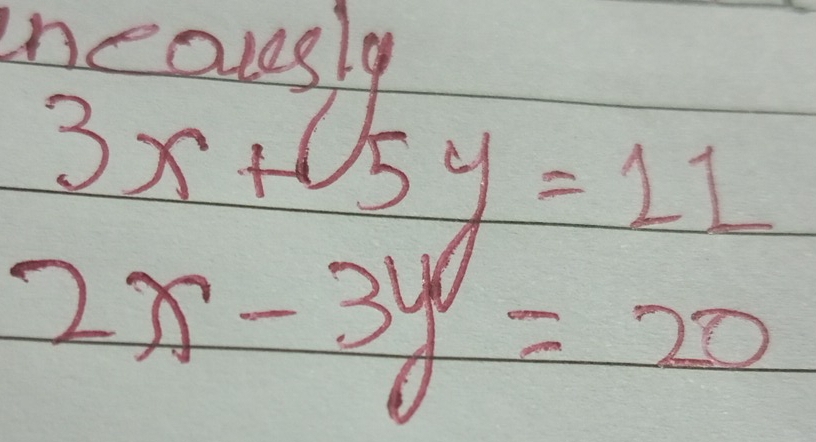 neously
3x + 5y = 11
2x - 3y = 20